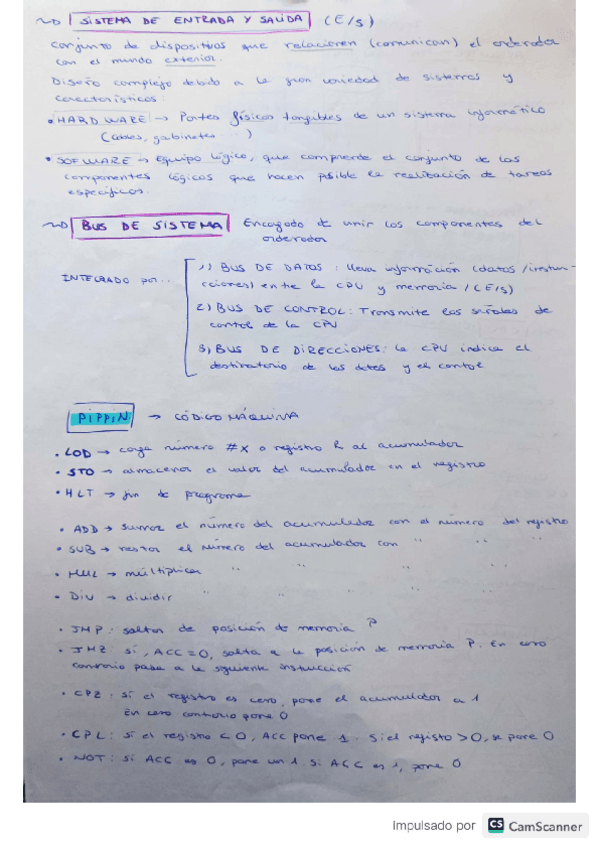 → SISTEMA DE ENTRADA Y SALIDA (E/S)
Conjunto de dispositivos que relacionen (comunican) el ordenador
con el mundo exterior.
Diseño complejo debido a la gran variedad de sistemas y
características:
• HARDWARE → Partes físicas tangibles de un sistema informático
(cables, gabinetes ...)
• SOFWARE → Equipo lógico, que comprende el conjunto de los
componentes lógicos que hacen posible la realización de tareas
específicas.
→ BUS DE SISTEMA Encargado de unir los componentes del
ordenador
INTEGRADO por...
1) BUS DE DATOS: lleva información (datos/instru-
cciones) entre la CPU y memoria / (E/S)
2) BUS DE CONTROL: Transmite las señales de
control de la CPU
3) BUS DE DIRECCIONES: la CPU indica el
destinatario de los datos y el control
PIPPIN → CÓDIGO MÁQUINA
• LOD → carga número #X o registro R al acumulador
• STO → almacenar el valor del acumulador en el registro
• HLT → fin de programa
• ADD → sumar el número del acumulador con el número del registro
• SUB → restar el número del acumulador con " " "
• MUL → múltiplica " " " "
• DIV → dividir " " " "
• JMP: saltar de posición de memoria P
• JMZ: si, ACC=0, salta a la posición de memoria P. En caso
contrario pasa a la siguiente instrucción
• CPZ: Si el registro es cero, pone el acumulador a 1
En caso contrario pone 0
• CPL: Si el registro < 0, ACC pone 1. Si el registo >0, se pone 0
• NOT: Si ACC es 0, pone un 1. Si ACC es 1, pone 0
Impulsado por CS CamScanner